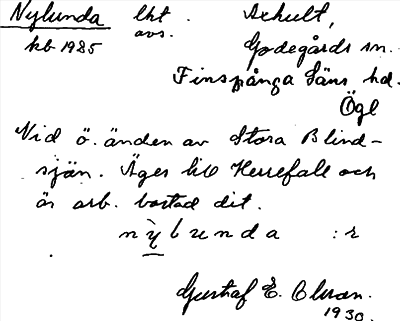 Nylunda lht. Axhult,
avs.
kb 1985 Godegårds sn.
Finspånga läns hd.
Ögl
Vid ö. änden av Stora Blind-
sjön. Äges till Herrefall och
är arb. bostad dit.
nỳlunda :r
Gustaf E. Olsson.
1930.